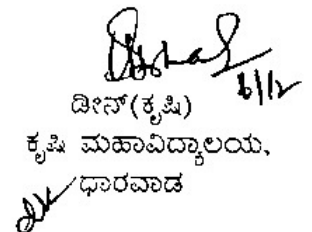 6/12
ಡೀನ್(ಕೃಷಿ)
ಕೃಷಿ ಮಹಾವಿದ್ಯಾಲಯ,
ಧಾರವಾಡ